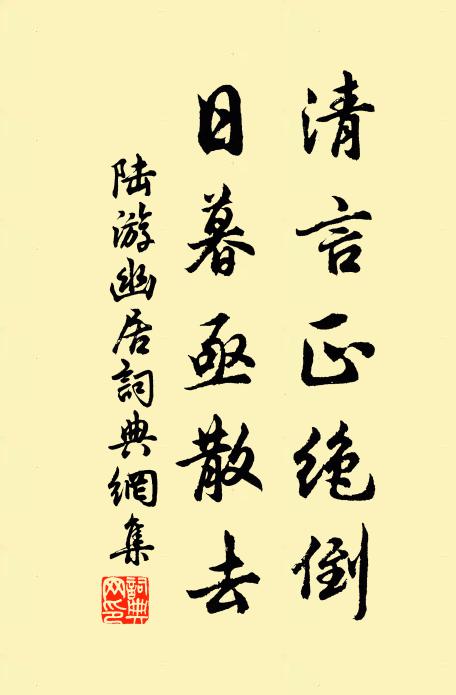 清言正絶倒
日暮亟散去
陸游幽居詞典網集
詞典網印